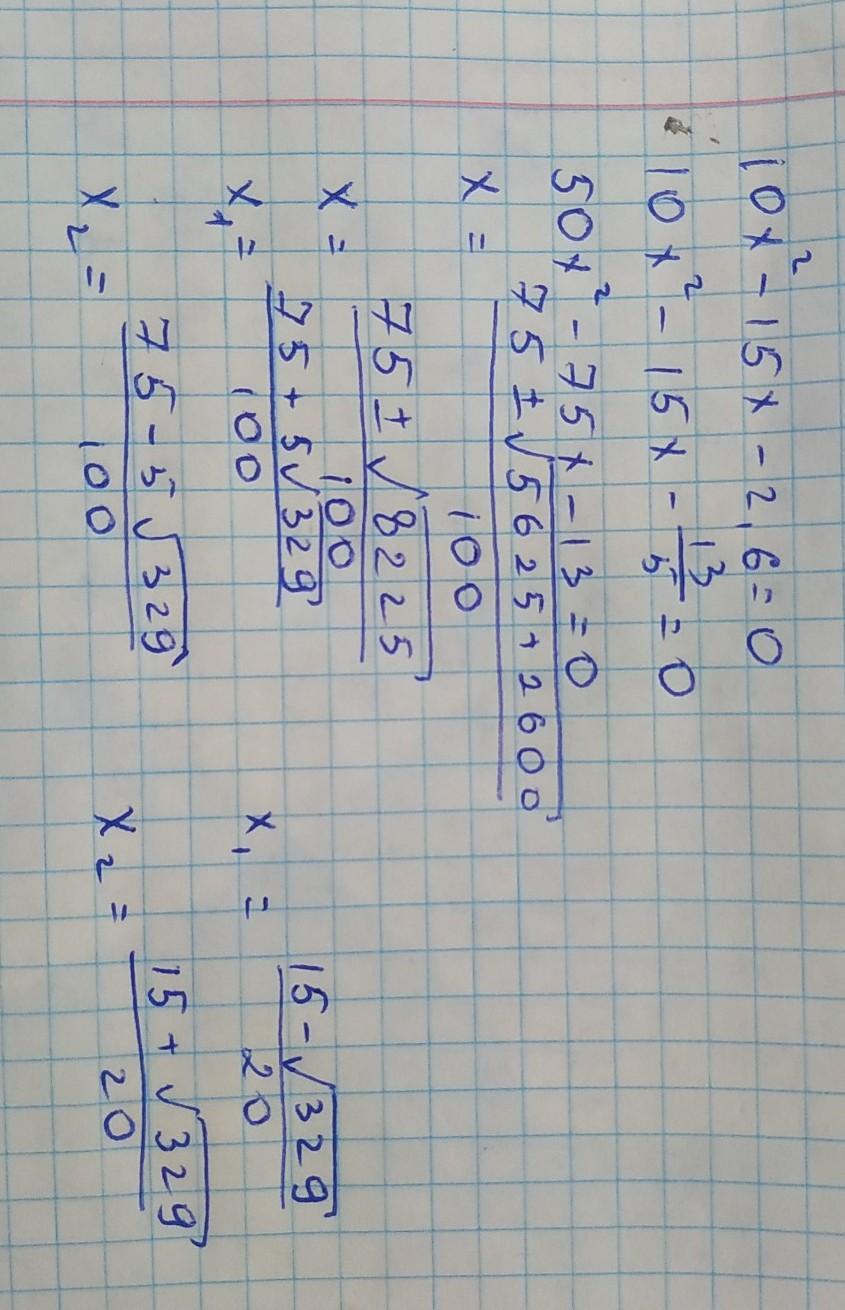 10x² - 15x - 2,6 = 0
10x² - 15x - 13/5 = 0
50x² - 75x - 13 = 0
x = (75 ± √(5625 + 2600))/100
x = (75 ± √8225)/100
x₁ = (75 + 5√329)/100
x₂ = (75 - 5√329)/100
x₁ = (15 - √329)/20
x₂ = (15 + √329)/20